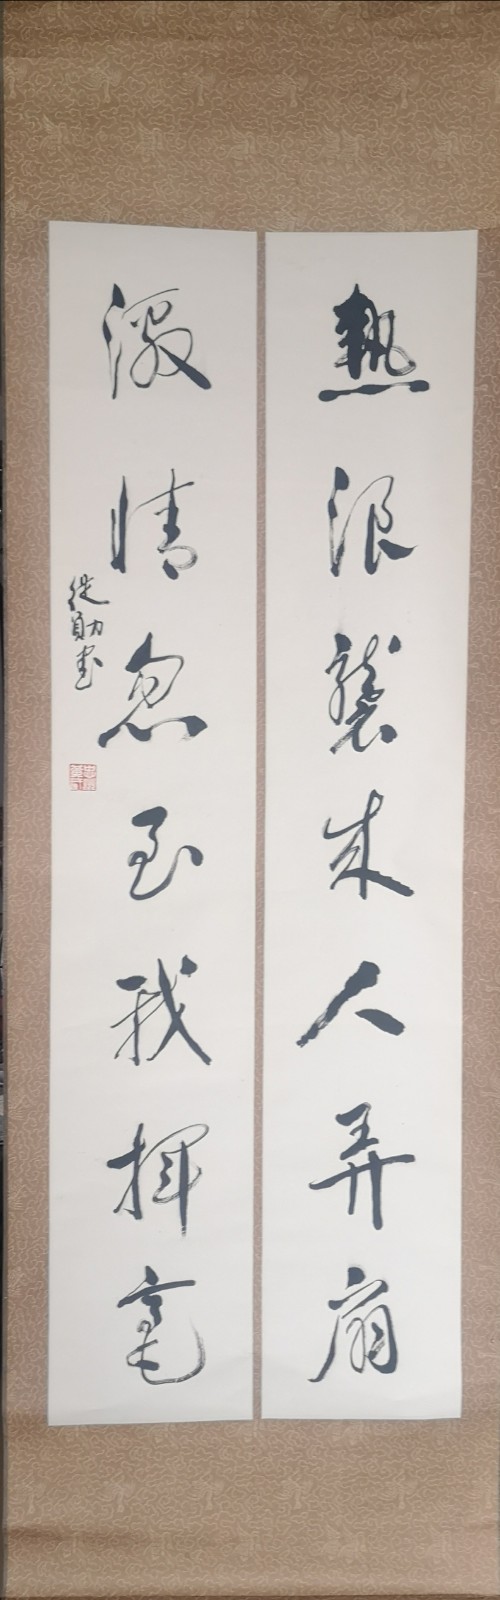 熱浪襲來人弄扇
激情忽至我揮毫
從勛书